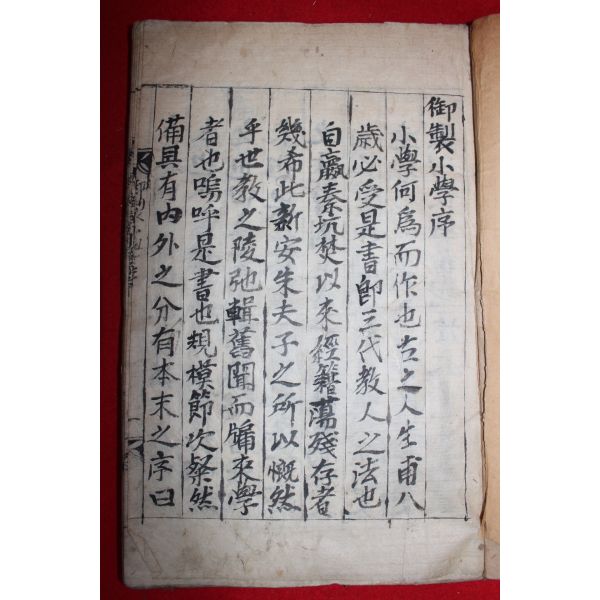 御製小學序
小學何爲而作也古之人生甫八
歲必受是書卽三代敎人之法也
自嬴秦坑焚以來經籍蕩殘存者
幾希此新安朱夫子之所以慨然
乎世敎之陵弛輯舊聞而牖來學
者也嗚呼是書也規模節次粲然
備具有內外之分有本末之序曰